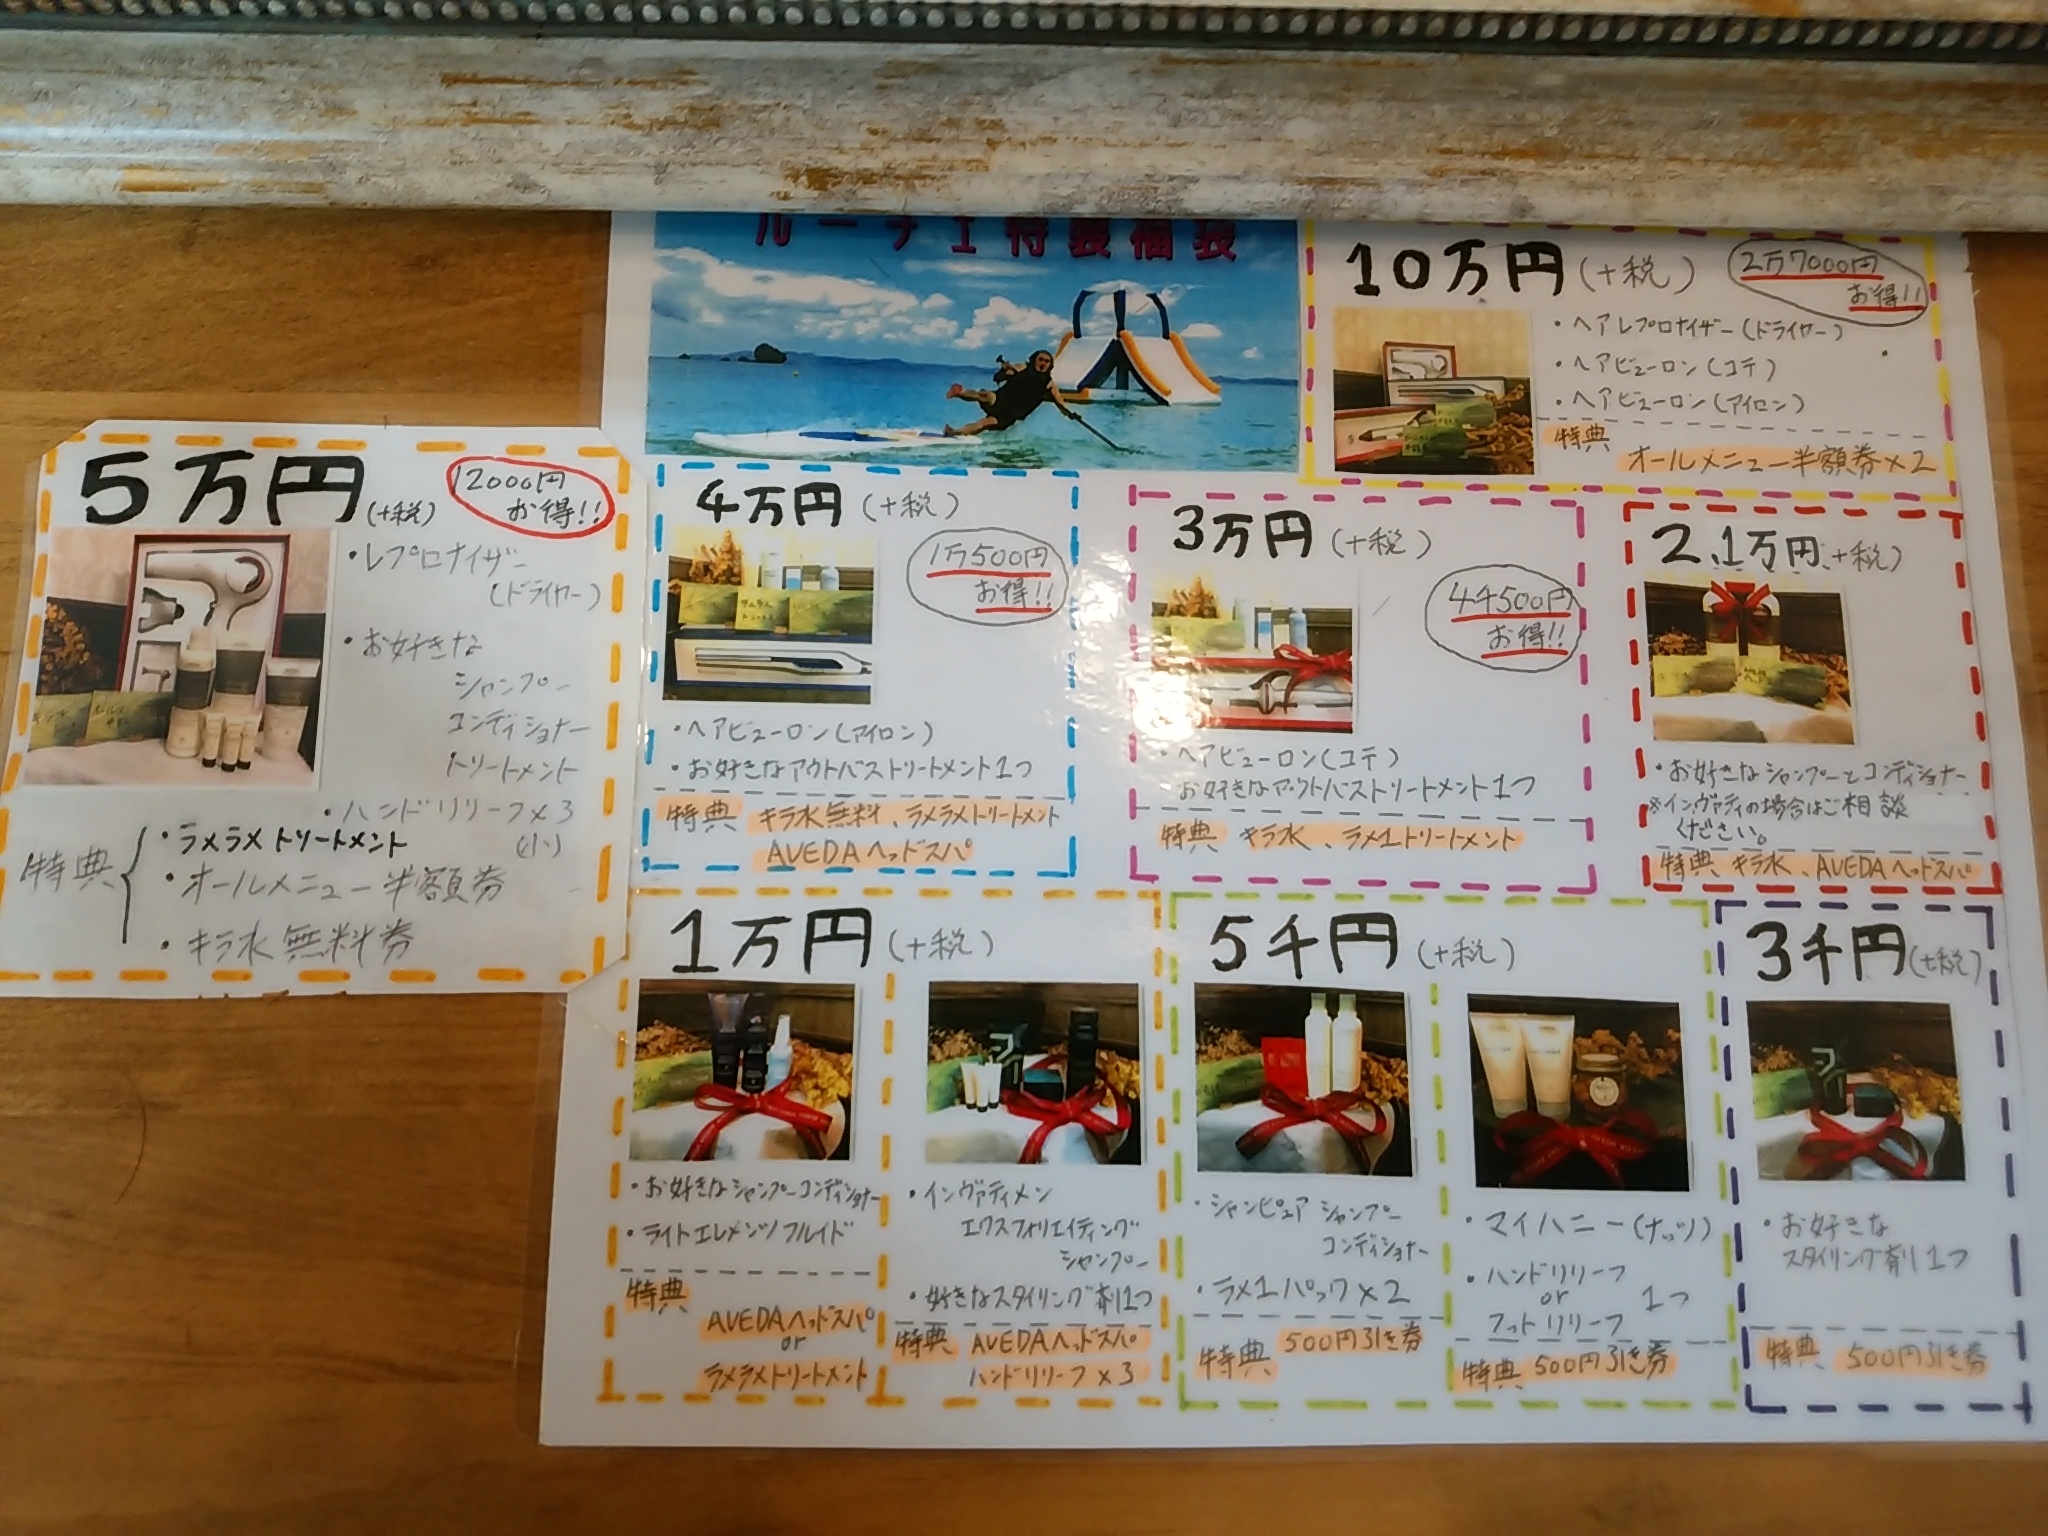 ルーチェ特製福袋
10万円(+税)
2万7000円
お得!!
・ヘアレプロナイザー(ドライヤー)
・ヘアビューロン(コテ)
・ヘアビューロン(アイロン)
特典
オールメニュー半額券×2
5万円(+税)
12000円
お得!!
・レプロナイザー
(ドライヤー)
・お好きな
シャンプー
コンディショナー
トリートメント
・ハンドリリーフ×3
(小)
特典
・ラメラメトリートメント
・オールメニュー半額券
・キラ水無料券
4万円(+税)
1万500円
お得!!
・ヘアビューロン(アイロン)
・お好きなアウトバストリートメント1つ
特典 キラ水無料、ラメラメトリートメント
AVEDAヘッドスパ
3万円(+税)
4千500円
お得!!
・ヘアビューロン(コテ)
お好きなアウトバストリートメント1つ
特典 キラ水、ラメ1トリートメント
2.1万円+税)
・お好きなシャンプーとコンディショナー
※インヴァティの場合はご相談
ください。
特典 キラ水、AVEDAヘッドスパ
1万円(+税)
・お好きなシャンプーコンディショナー
・ライトエレメンツフルイド
特典
AVEDAヘッドスパ
or
ラメラメトリートメント
・インヴァティメン
エクスフォリエイティング
シャンプー
・好きなスタイリング剤1つ
特典 AVEDAヘッドスパ
ハンドリリーフ×3
5千円(+税)
・シャンピュア シャンプー
コンディショナー
・ラメ1パック×2
特典 500円引き券
・マイハニー(ナッツ)
・ハンドリリーフ
or 1つ
フットリリーフ
特典 500円引き券
3千円(+税)
・お好きな
スタイリング剤1つ
特典 500円引き券